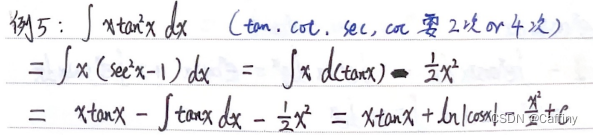 例5: ∫ x tan²x dx (tan. cot. sec, coc 要 2次 or 4次)
= ∫ x (sec²x-1) dx = ∫ x d(tanx) - ½x²
= x tanx - ∫ tanx dx - ½x² = x tanx + ln|cosx| - x²/2 + C
CSDN @Caffiny